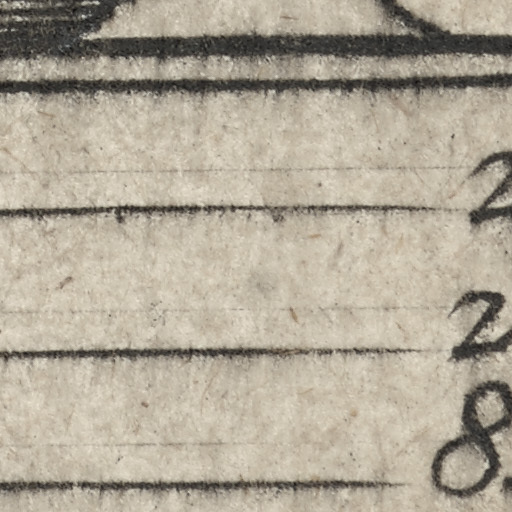 2
2
8.